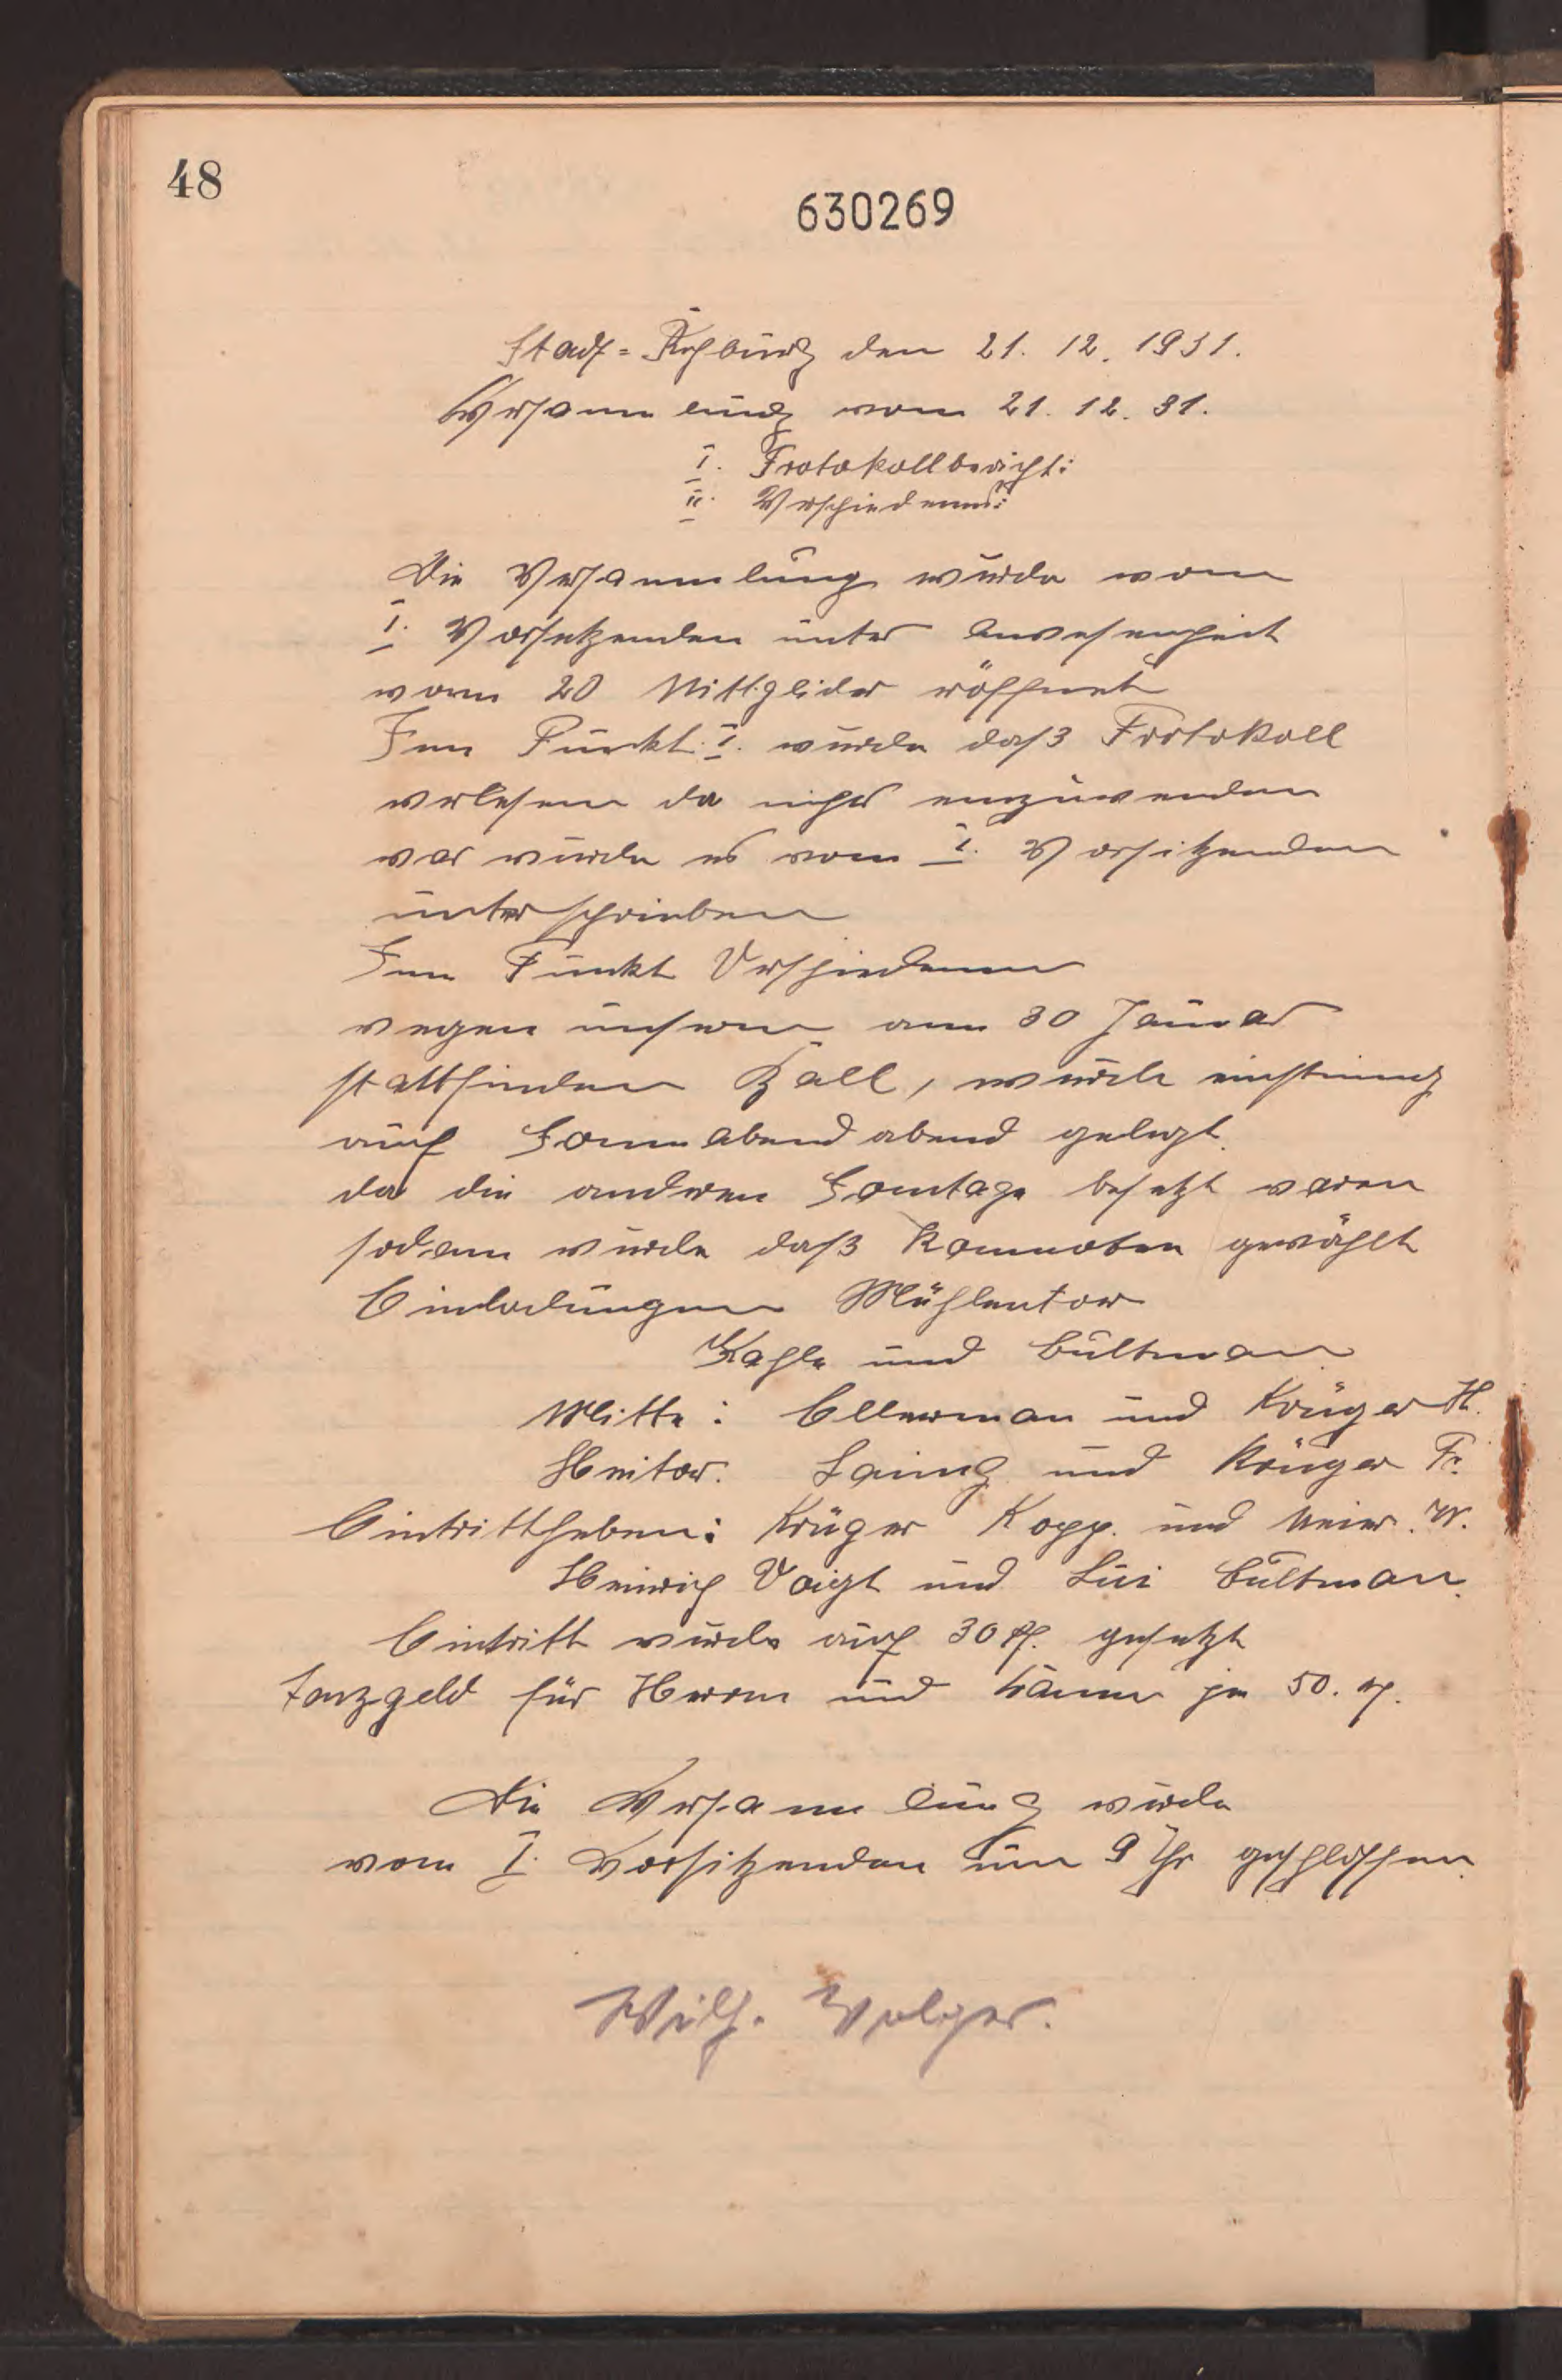 48
630269
Stadt=Rehburg den 21. 12. 1931.
Versammlung vom 21. 12. 31.
I. Protokollbericht:
II. Verschiedenes:
Die Versammlung wurde vom
I. Vorsetzenden unter Anwesenheit
vom 20 Mittglider eröffnet
Im Punkt I. wurde daß Protokoll
verlesen da nichts einzuwenden
war wurde es vom I. Vorsitzenden
unterschrieben
Im Punkt Verschiedenen
wegen unseren am 30 Januar
stattfinden Ball, wurde einstimig
auf Sonnabend abend gelegt.
da die anderen Sontage besetzt waren
sodann wurde daß Kommoten gewählt
Einladungen Mühlentor
Kahle und Bültman
Mitte: Ellerman und Krüger H.
Heitor. und Krüger Fr.
Eintrittheben: Krüger Kopp. und Meier. W.
Heinrich Voigt und Lui Bültman.
Eintritt wurde auf 30 Pf. gesetzt
Tanzgeld für Herren und je 50. Pf.
Die Versammlung wurde
vom I. Vorsitzenden um 9 Uhr geschlossen.
Wilh. Volger.